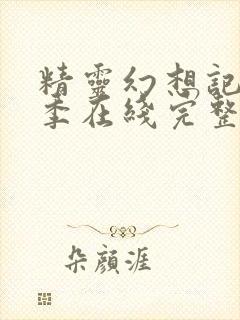 精靈幻想記
季在綫完整
朵顏涯